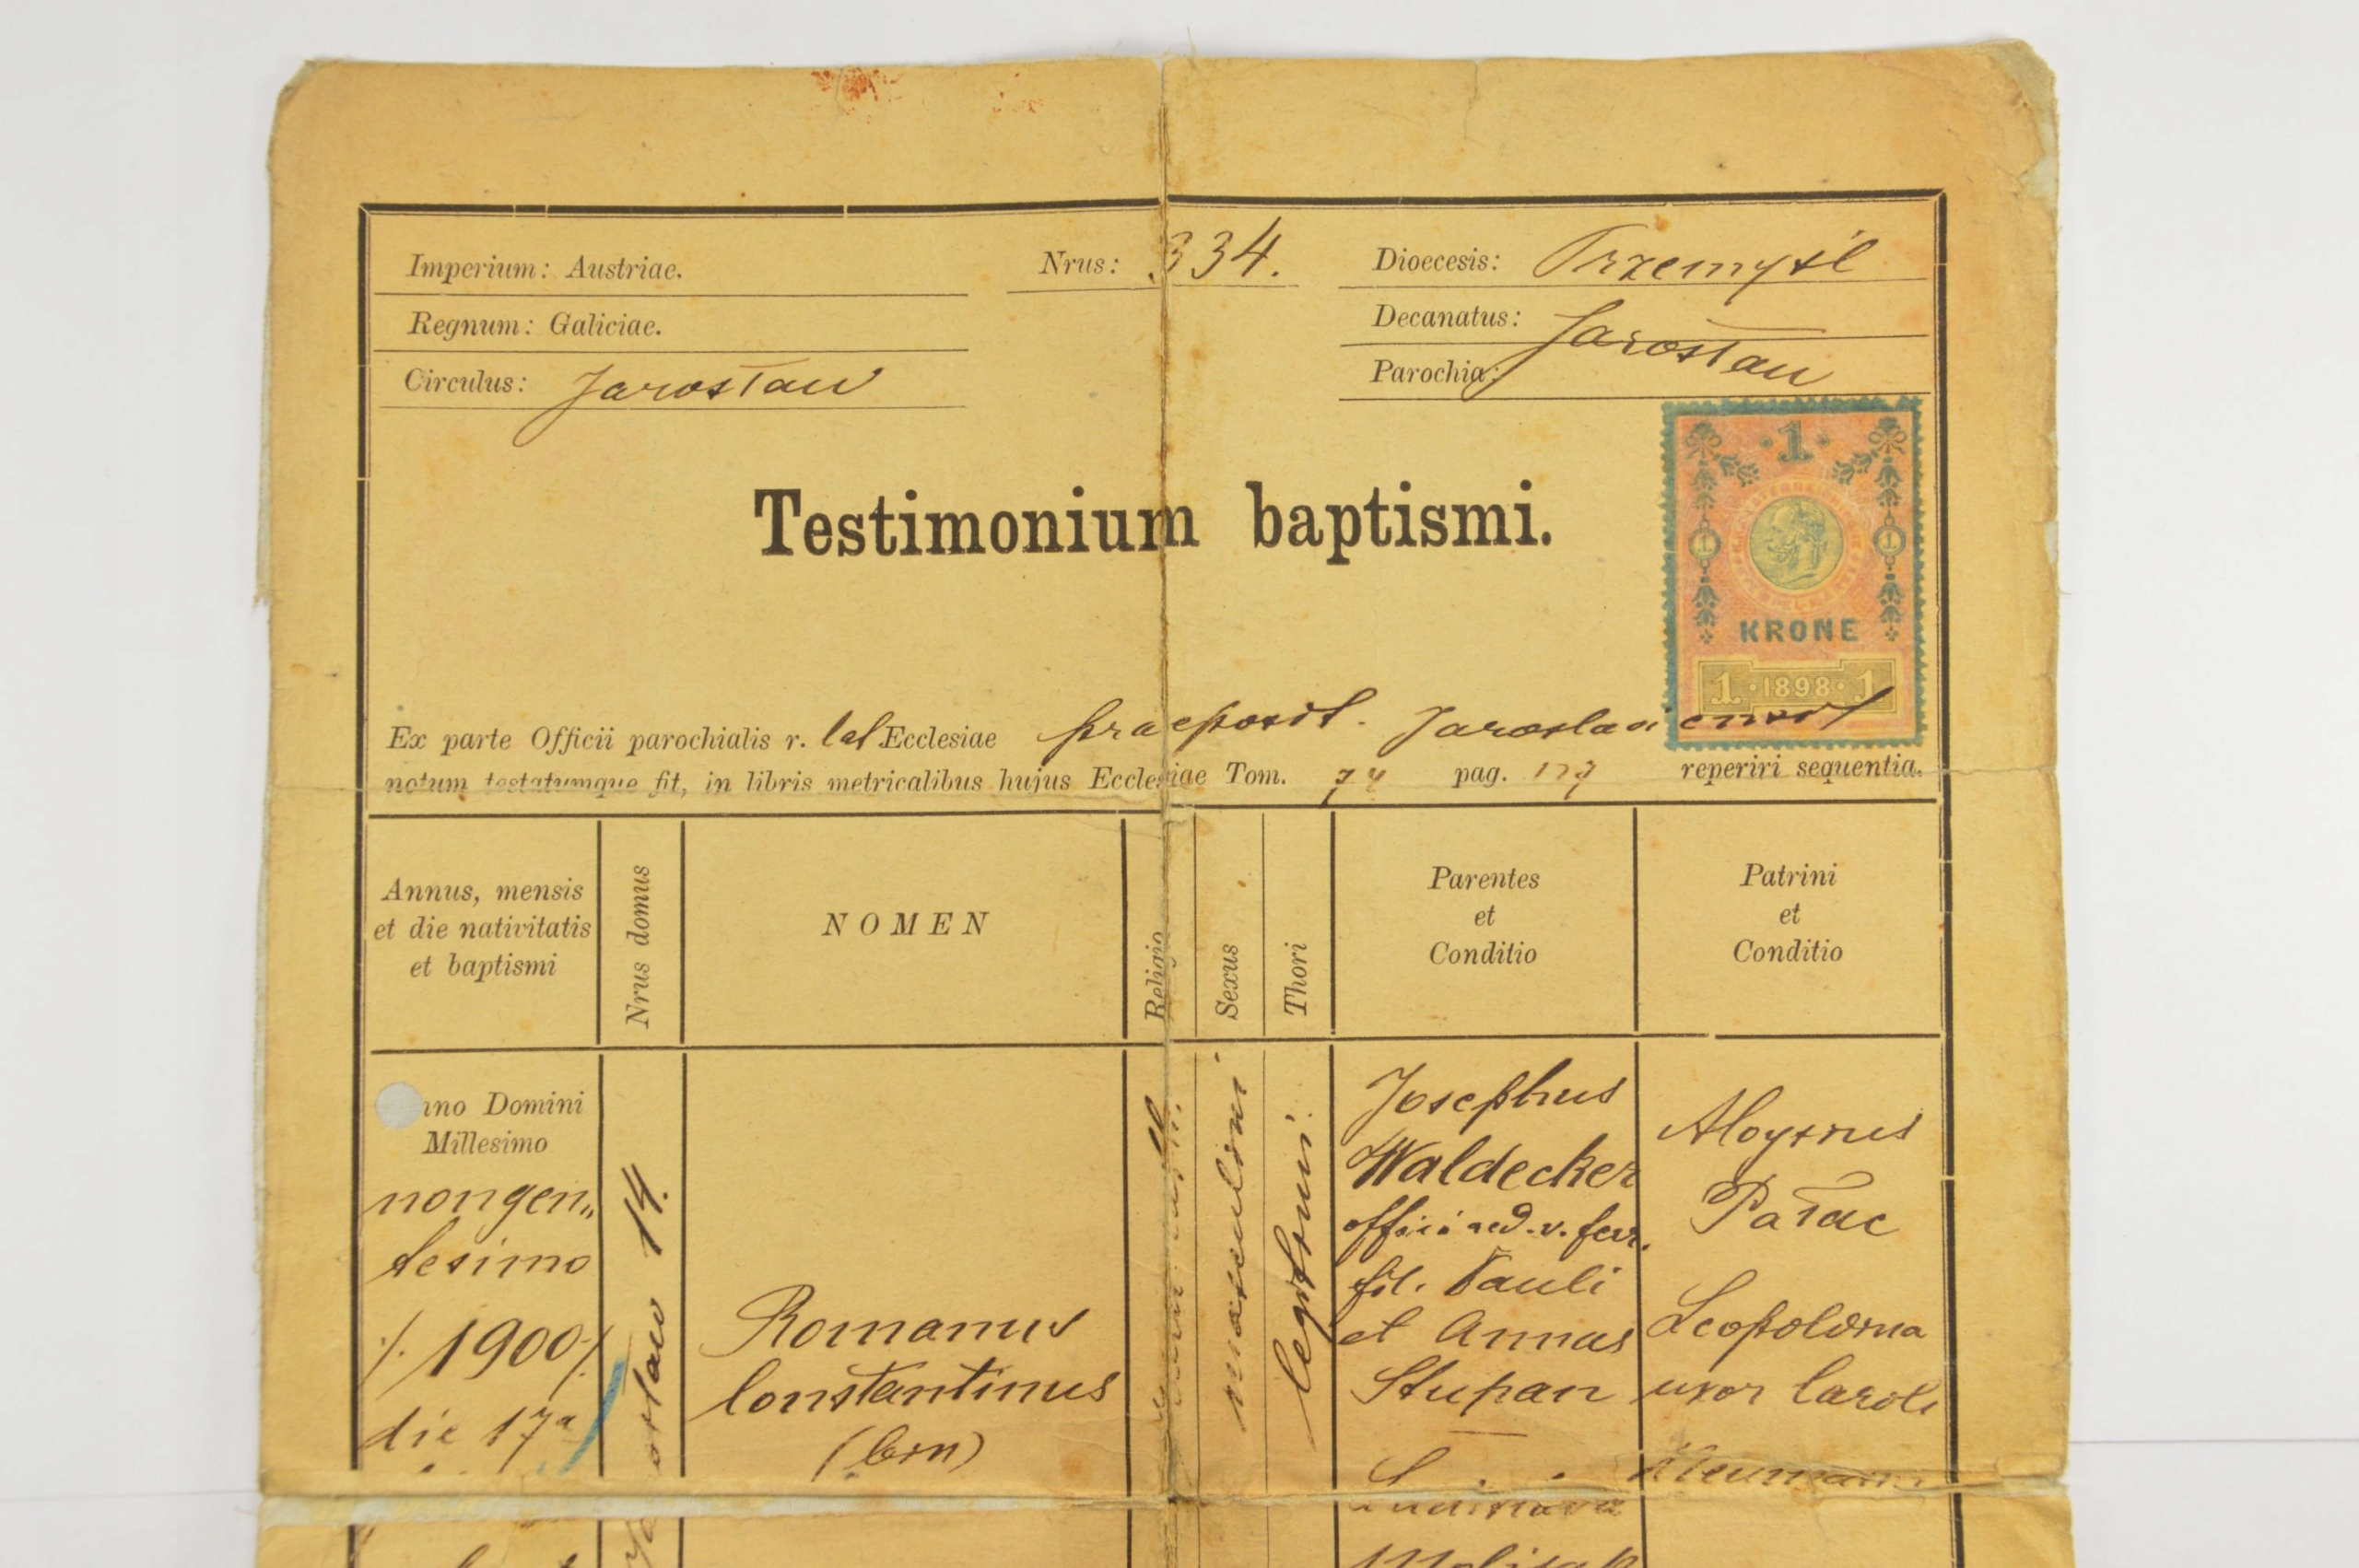 Imperium: Austriae.
Nrus: 334.
Dioecesis: Przemyśl
Regnum: Galiciae.
Decanatus:
Jarosłau
Circulus: Jarosław
Parochia:
Testimonium baptismi.
1
1 1
KRONE
1 · 1898 · 1
Ex parte Officii parochialis r. lat Ecclesiae praeposit. Jaroslaviensis
notum testatumque fit, in libris metricalibus hujus Ecclesiae Tom. pag. reperiri sequentia.
Annus, mensis
et die nativitatis
et baptismi
Nrus domus
NOMEN
Religio
Sexus
Thori
Parentes
et
Conditio
Patrini
et
Conditio
nno Domini
Millesimo
nongen„
tesimo
/. 1900 /.
die 17a
14.
Romanus
Constantinus
(bin)
masculini
legitimi.
Josephus
Waldecker
v. ferr.
fil. Pauli
et Annae
Stupan
Aloysius
Pałac
Leopoldina
uxor Caroli
Neumann